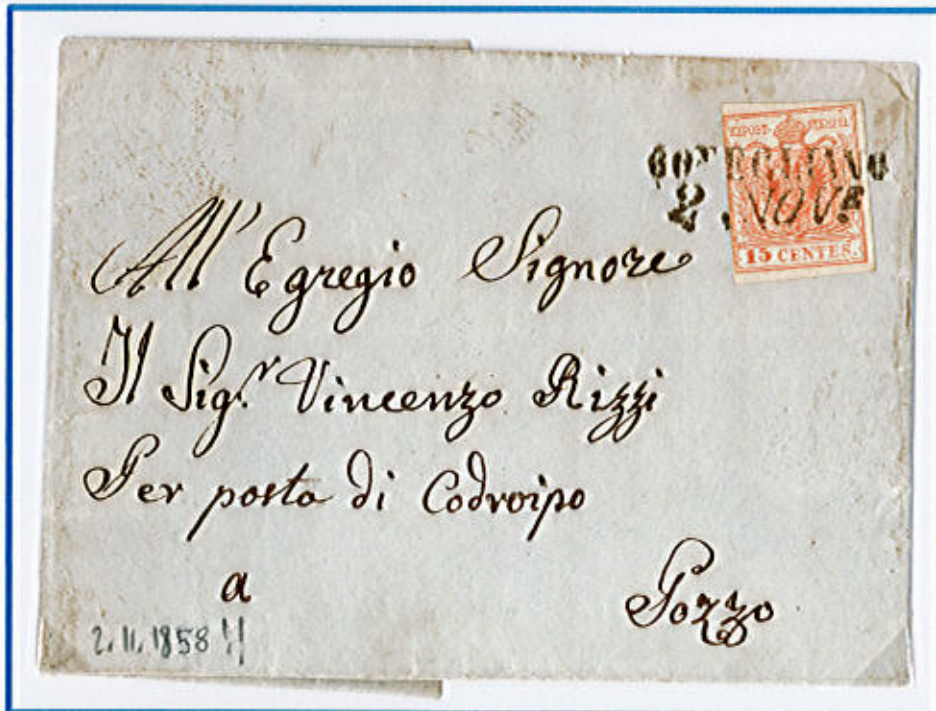 KKPOST-STEMPEL
CONEGLIANO
2. NOV.E
15 CENTES.
All' Egregio Signore
Il Sig.r Vincenzo Rizzi
Per posta di Codroipo
a Pozzo
2.11.1858 !!